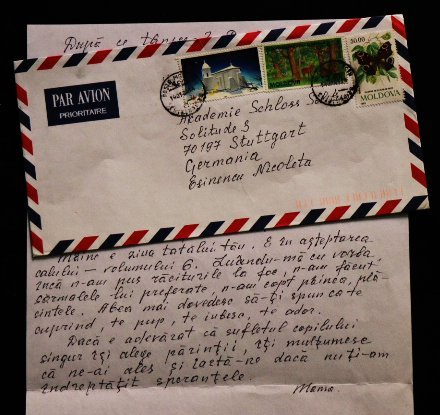 După ce
PAR AVION
PRIORITAIRE
MOLDOVA
Akademie Schloss Solitude
Solitude 3
70197 Stuttgart
Germania
Esinencu Nicoleta
Mâine e ziua tatălui tău. E în așteptarea
calului – volumului 6. Luându-mă cu vorba
încă n-am pus răciturile la foc, n-am făcut
sarmalele lui preferate, n-am copt pâinea, plă-
cintele. Abea mai dovedesc să-ți spun că te
cuprind, te pup, te iubesc, te ador.
Dacă e adevărat că sufletul copilului
singur își alege părinții, îți mulțumesc
că ne-ai ales și iartă-ne dacă nu ți-am
îndreptățit speranțele.
Mama.